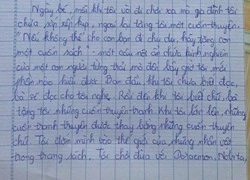 Ngày bé, mỗi khi tôi về đi chơi xa mà gia đình tôi
chưa sắp xếp kịp, ngoại lại tặng tôi một cuốn truyện.
"Nếu không thể cho con bạn đi chu du, hãy tặng con
một cuốn sách" - một câu nói ẩn chứa kinh nghiệm
của một con người từng trải mà đến bây giờ tôi mới
phần nào hiểu được. Ban đầu khi tôi chưa biết đọc,
bà sẽ đọc cho tôi nghe. Rồi đến khi tôi biết chữ, bà
tặng tôi những cuốn truyện tranh. Khi tôi lớn lên, những
cuốn tranh truyện được thay bằng những cuốn truyện
chữ. Tôi đắm mình vào thế giới của những nhân vật
trong trang sách. Tôi chơi đùa với Doraemon, Nobita,